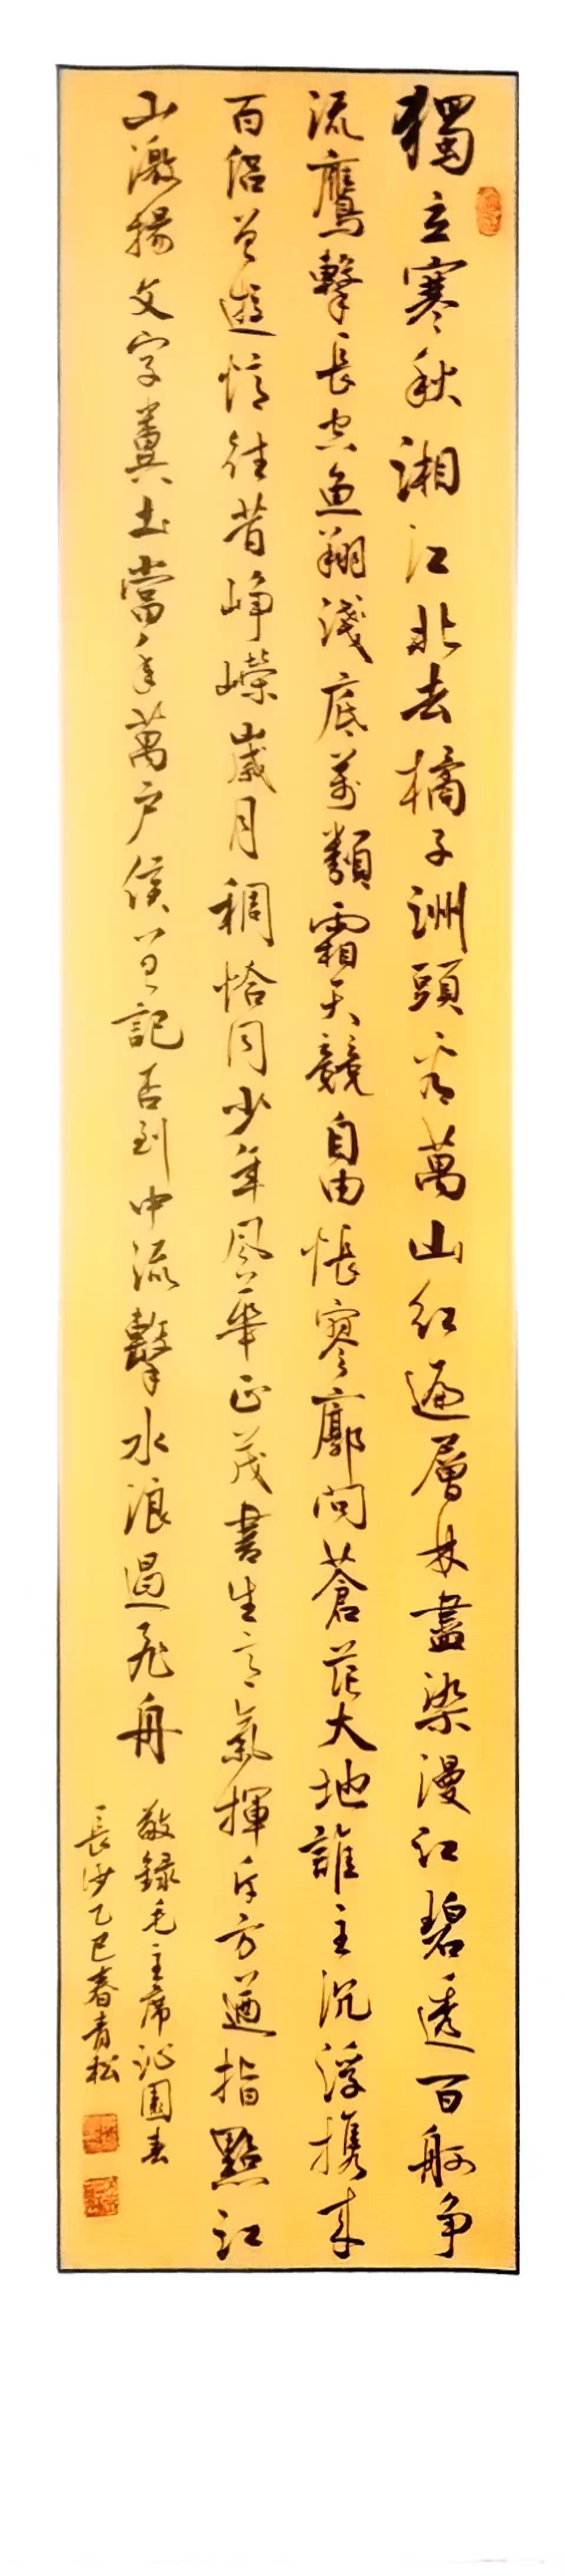 獨立寒秋湘江北去橘子洲頭看萬山紅遍層林盡染漫江碧透百舸争
流鷹擊長空魚翔淺底萬類霜天競自由悵寥廓問蒼茫大地誰主沉浮携來
百侣曾遊憶往昔崢嶸歲月稠恰同少年風華正茂書生意氣揮斥方遒指點江
山激揚文字糞土當年萬户侯曾記否到中流擊水浪遏飛舟
敬録毛主席沁園春
長沙乙巳春青松